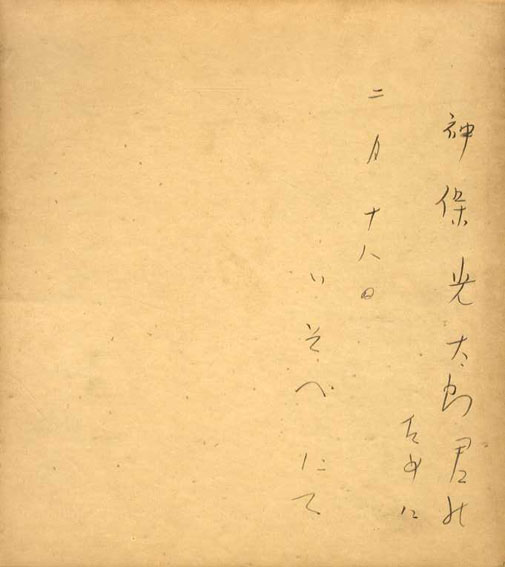 神保光太郎君の
ために
二月十八日
いそべにて